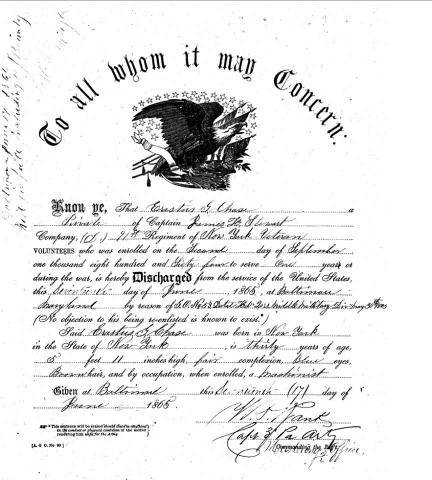 To all whom it may Concern:
Know ye, That Erastus G. Chase a
Private of Captain James H. Stewart
Company, 91st Regiment of New York Veteran
VOLUNTEERS who was enrolled on the Second day of September
one thousand eight hundred and Sixty four to serve One years or
during the war, is hereby Discharged from the service of the United States,
this day of June, 1865, at Baltimore
Maryland by reason of
(No objection to his being re-enlisted is known to exist.)
Said Erastus G. Chase was born in New York
in the State of New York, is thirty years of age,
5 feet 11 inches high, fair complexion, blue eyes,
Brown hair, and by occupation, when enrolled, a Machinist
Given at Baltimore this (17) day of
June 1865.
*This sentence will be erased should there be anything
in the conduct or physical condition of the soldier
rendering him unfit for the Army.
[A. G. O. No. 99]
Commanding the